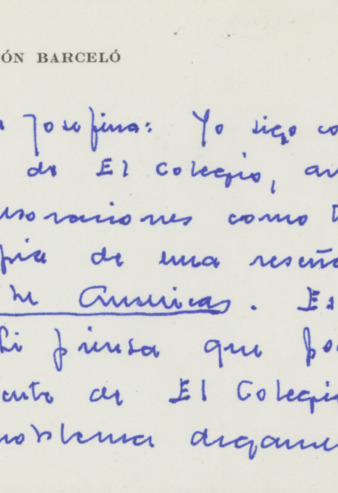 ÓN BARCELÓ
Josefina: Yo sigo co
de El Colegio, an
soraciones como
pia de una reseñ
he Americas. Es
piensa que po
ento de El Colegi
roblema digame